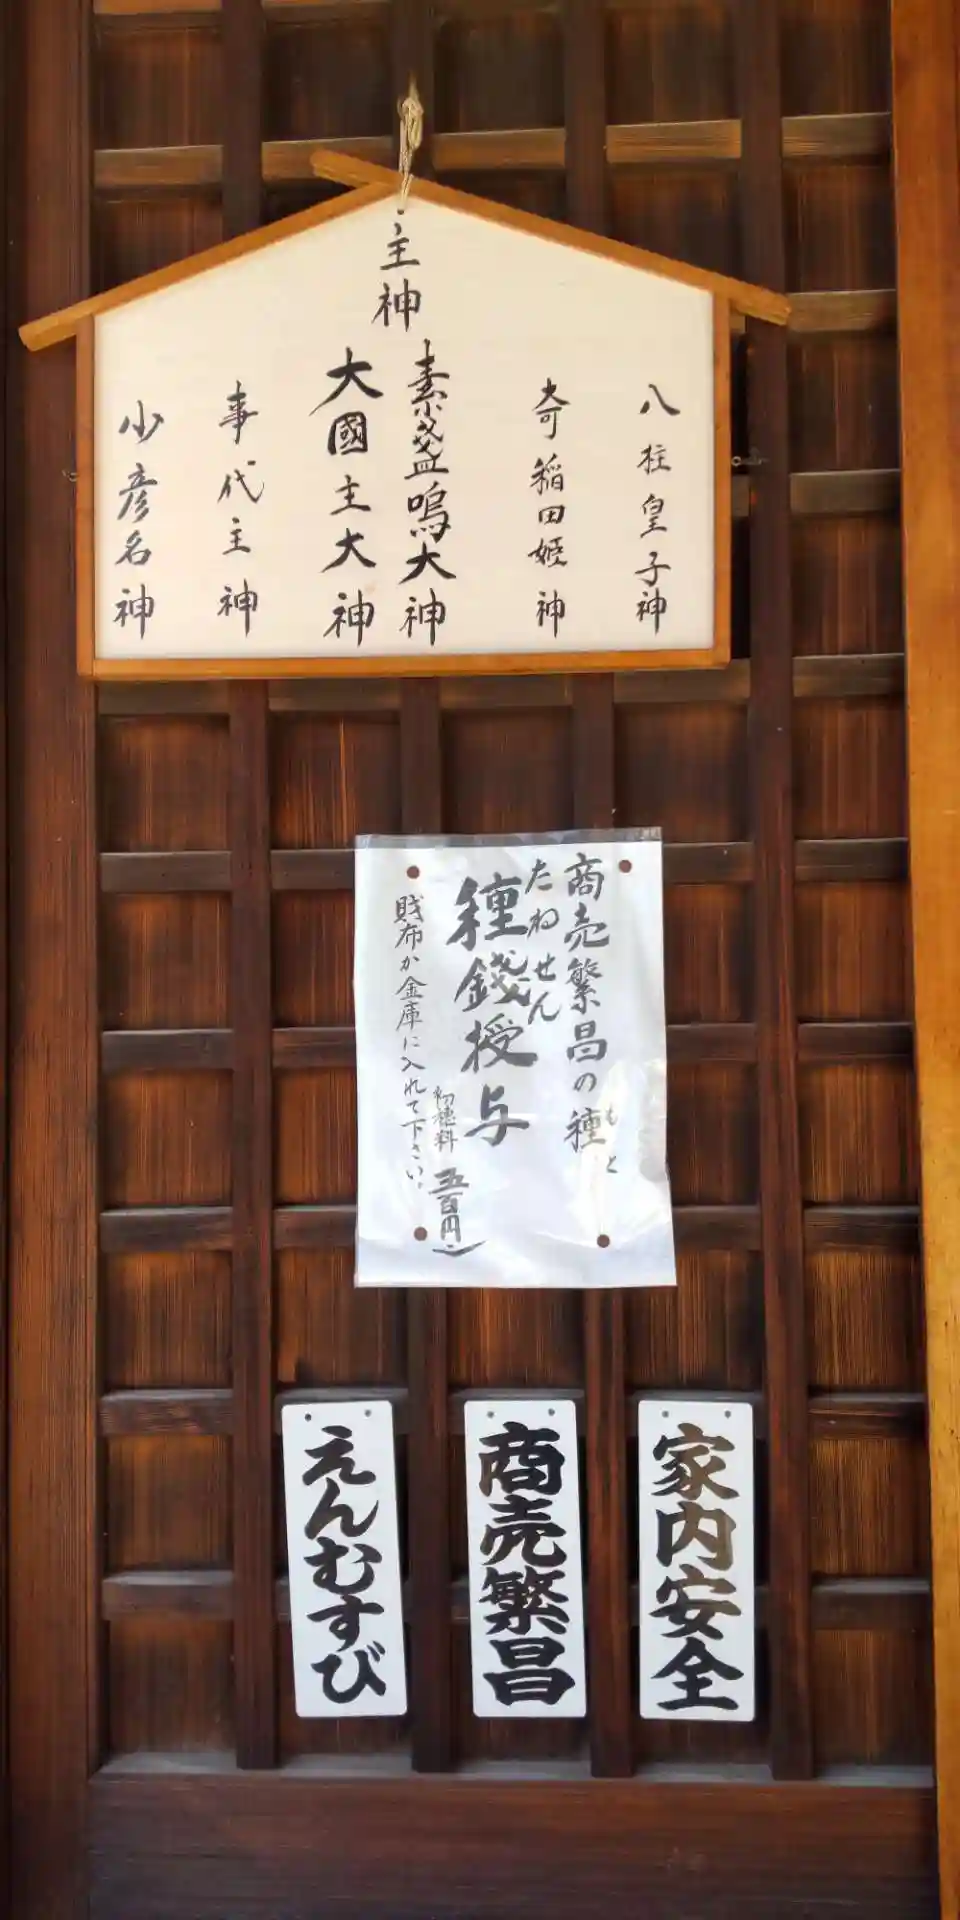 主神
八柱皇子神
奇稲田姫神
素盞嗚大神
大國主大神
事代主神
少彦名神
商売繁昌の種
もと
たねせん
種銭授与
初穂料 五百円
財布か金庫に入れて下さい。
家内安全
商売繁昌
えんむすび